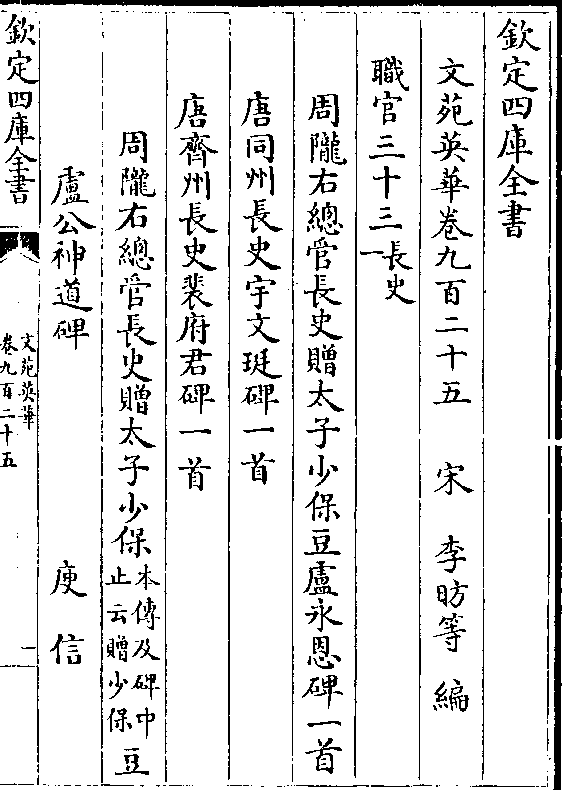 欽定四庫全書
文苑英華卷九百二十五　宋　李昉等　編
職官三十三長史一
周隴右總管長史贈太子少保豆盧永恩碑一首
唐同州長史宇文珽碑一首
唐齊州長史裴府君碑一首
周隴右總管長史贈太子少保本傳及碑中止云贈少保豆
盧公神道碑　庾信
欽定四庫全書
文苑英華
卷九百二十五
一